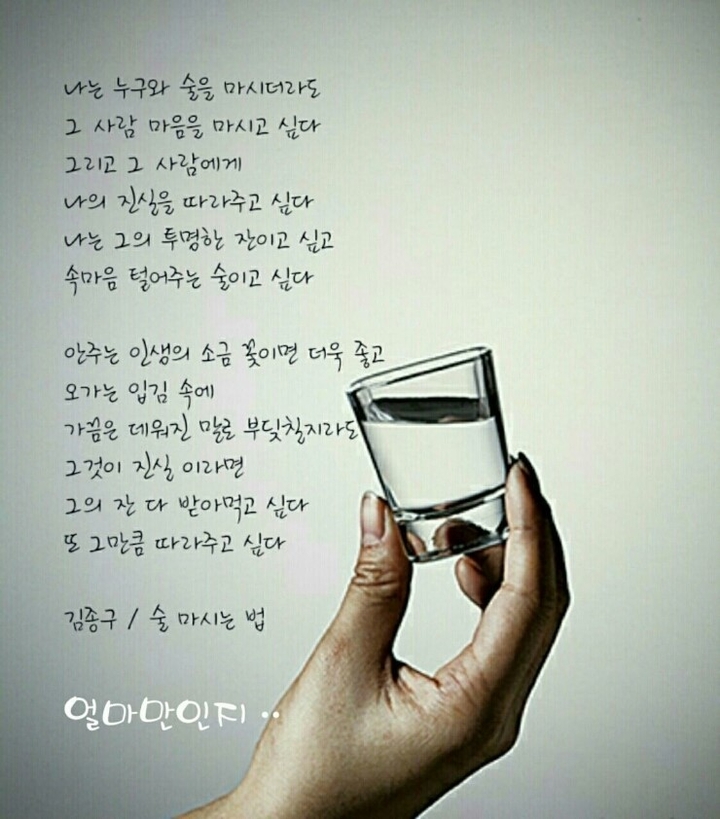 나는 누구와 술을 마시더라도
그 사람 마음을 마시고 싶다
그리고 그 사람에게
나의 진실을 따라주고 싶다
나는 그의 투명한 잔이고 싶고
속마음 털어주는 술이고 싶다
안주는 인생의 소금 꽃이면 더욱 좋고
오가는 입김 속에
가끔은 데워진 말로 부딪칠지라도
그것이 진실 이라면
그의 잔 다 받아먹고 싶다
또 그만큼 따라주고 싶다
김종구 / 술 마시는 법
얼마만인지 ..